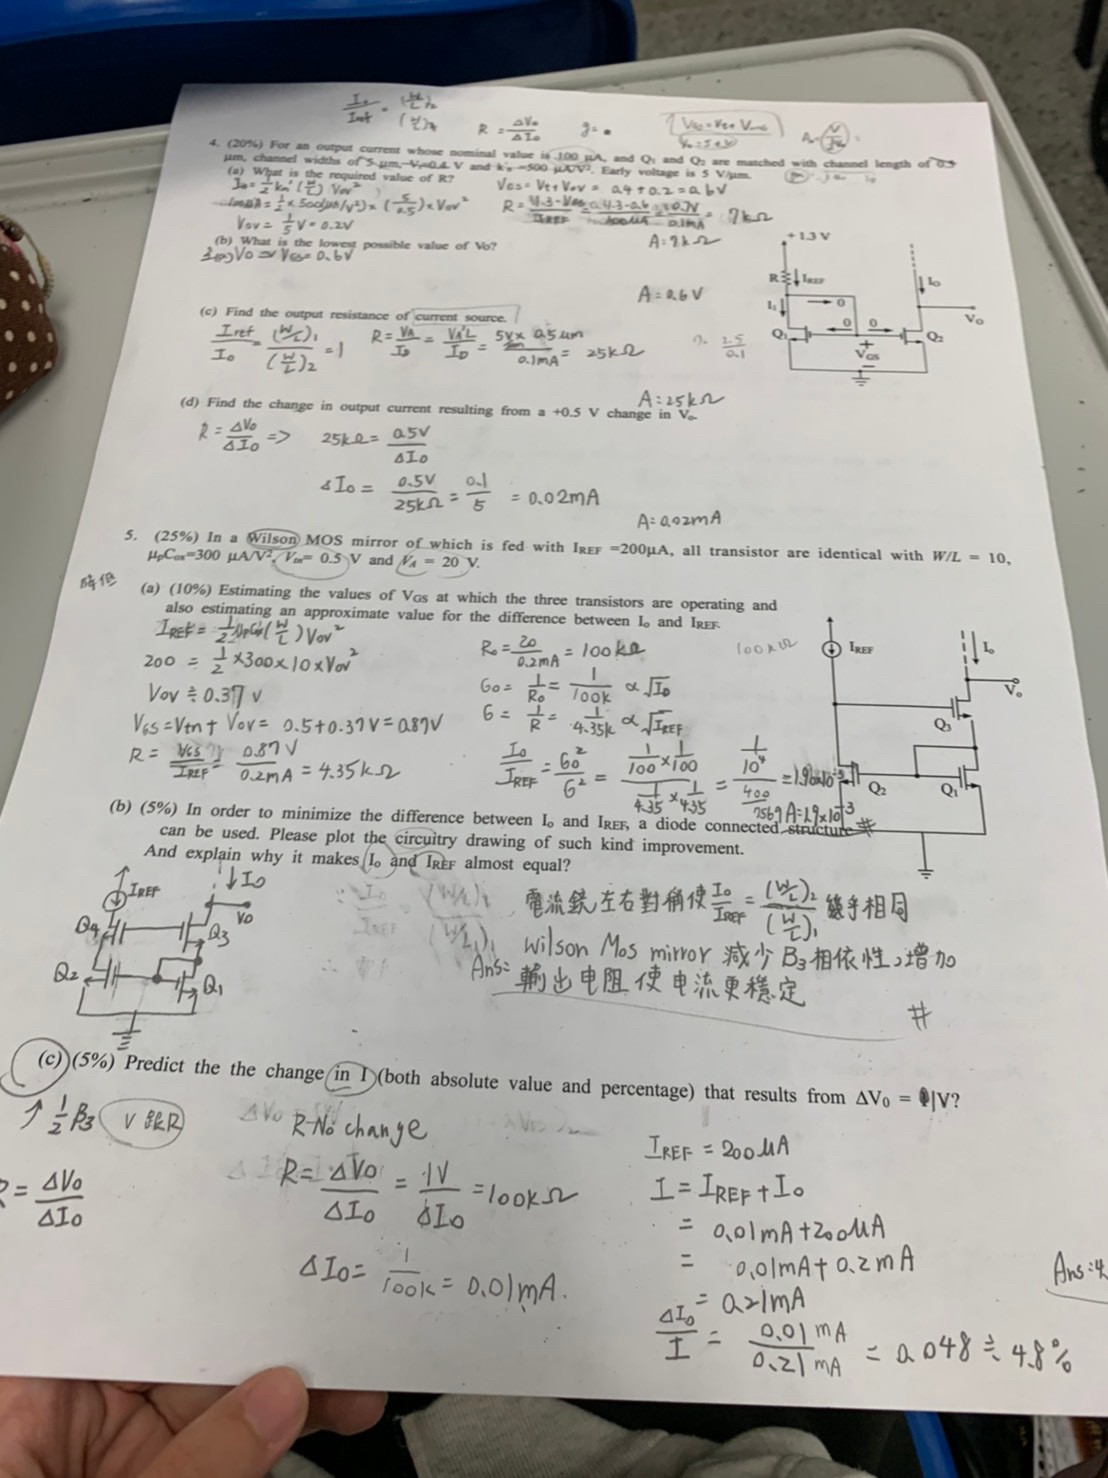 R = ΔVo / ΔIo
4. (20%) For an output current whose nominal value is 100 μA, and Q1 and Q2 are matched with channel length of 0.5
μm, channel widths of 5 μm, Vt=0.4 V and k'n =500 μA/V². Early voltage is 5 V/μm.
(a) What is the required value of R?
Io = 1/2 kn' (W/L) Vov²
100μA = 1/2 × 500(μA/V²) × (5/0.5) × Vov²
Vov = 1/5 V = 0.2V
VGS = Vt + Vov = 0.4 + 0.2 = 0.6V
R = (1.3-VGS)/IREF = = 0.7V/0.1mA = 7kΩ
(b) What is the lowest possible value of Vo?
VGS = 0.6V
+1.3 V
R
IREF
Io
I1
0
0
0
Vo
Q1
Q2
+
VGS
−
A = 0.6V
(c) Find the output resistance of current source.
Iref / Io = (W/L)1 / (W/L)2 = 1
R = VA/ID = VA'L/ID = 5V/μm × 0.5um / 0.1mA = 25kΩ
2.5 / 0.1
A = 25kΩ
(d) Find the change in output current resulting from a +0.5 V change in Vo.
R = ΔVo / ΔIo => 25kΩ = 0.5V / ΔIo
ΔIo = 0.5V / 25kΩ = 0.1 / 5 = 0.02mA
A = 0.02mA
5. (25%) In a Wilson MOS mirror of which is fed with IREF =200μA, all transistor are identical with W/L = 10,
μpCox=300 μA/V², Vtn= 0.5 V and VA = 20 V.
(a) (10%) Estimating the values of VGS at which the three transistors are operating and
also estimating an approximate value for the difference between Io and IREF.
IREF = 1/2 μpCox (W/L) Vov²
200 = 1/2 × 300 × 10 × Vov²
Vov ≒ 0.37 V
VGS = Vtn + Vov = 0.5 + 0.37V = 0.87V
R = VGS / IREF = 0.87V / 0.2mA = 4.35kΩ
Ro = 20 / 0.2mA = 100kΩ
Go = 1/Ro = 1/100k ∝ √Io
G = 1/R = 1/4.35k ∝ √IREF
Io / IREF = Go² / G² = (1/100 × 1/100) / (1/4.35 × 1/4.35) = (1/10⁴) / (400/7569) = 1.9×10⁻³
A=1.9×10⁻³ #
IREF
Io
Vo
Q3
Q2
Q1
(b) (5%) In order to minimize the difference between Io and IREF, a diode connected structure
can be used. Please plot the circuitry drawing of such kind improvement.
And explain why it makes Io and IREF almost equal?
IREF
Io
Vo
Q4
Q3
Q2
Q1
電流鏡左右對稱使 Io / IREF = (W/L)2 / (W/L)1 幾乎相同
Wilson Mos mirror 減少 B3 相依性,增加
Ans= 輸出电阻使电流更穩定
#
(c) (5%) Predict the the change in I (both absolute value and percentage) that results from ΔV0 = 1V?
↑ 1/2 β3
R = ΔVo / ΔIo
R-No change
R = ΔVo / ΔIo = 1V / ΔIo = 100kΩ
ΔIo = 1 / 100k = 0.01mA.
IREF = 200μA
I = IREF + Io
= 0.01mA + 200μA
= 0.01mA + 0.2mA
= 0.21mA
ΔIo / I = 0.01mA / 0.21mA = 0.048 ≒ 4.8%